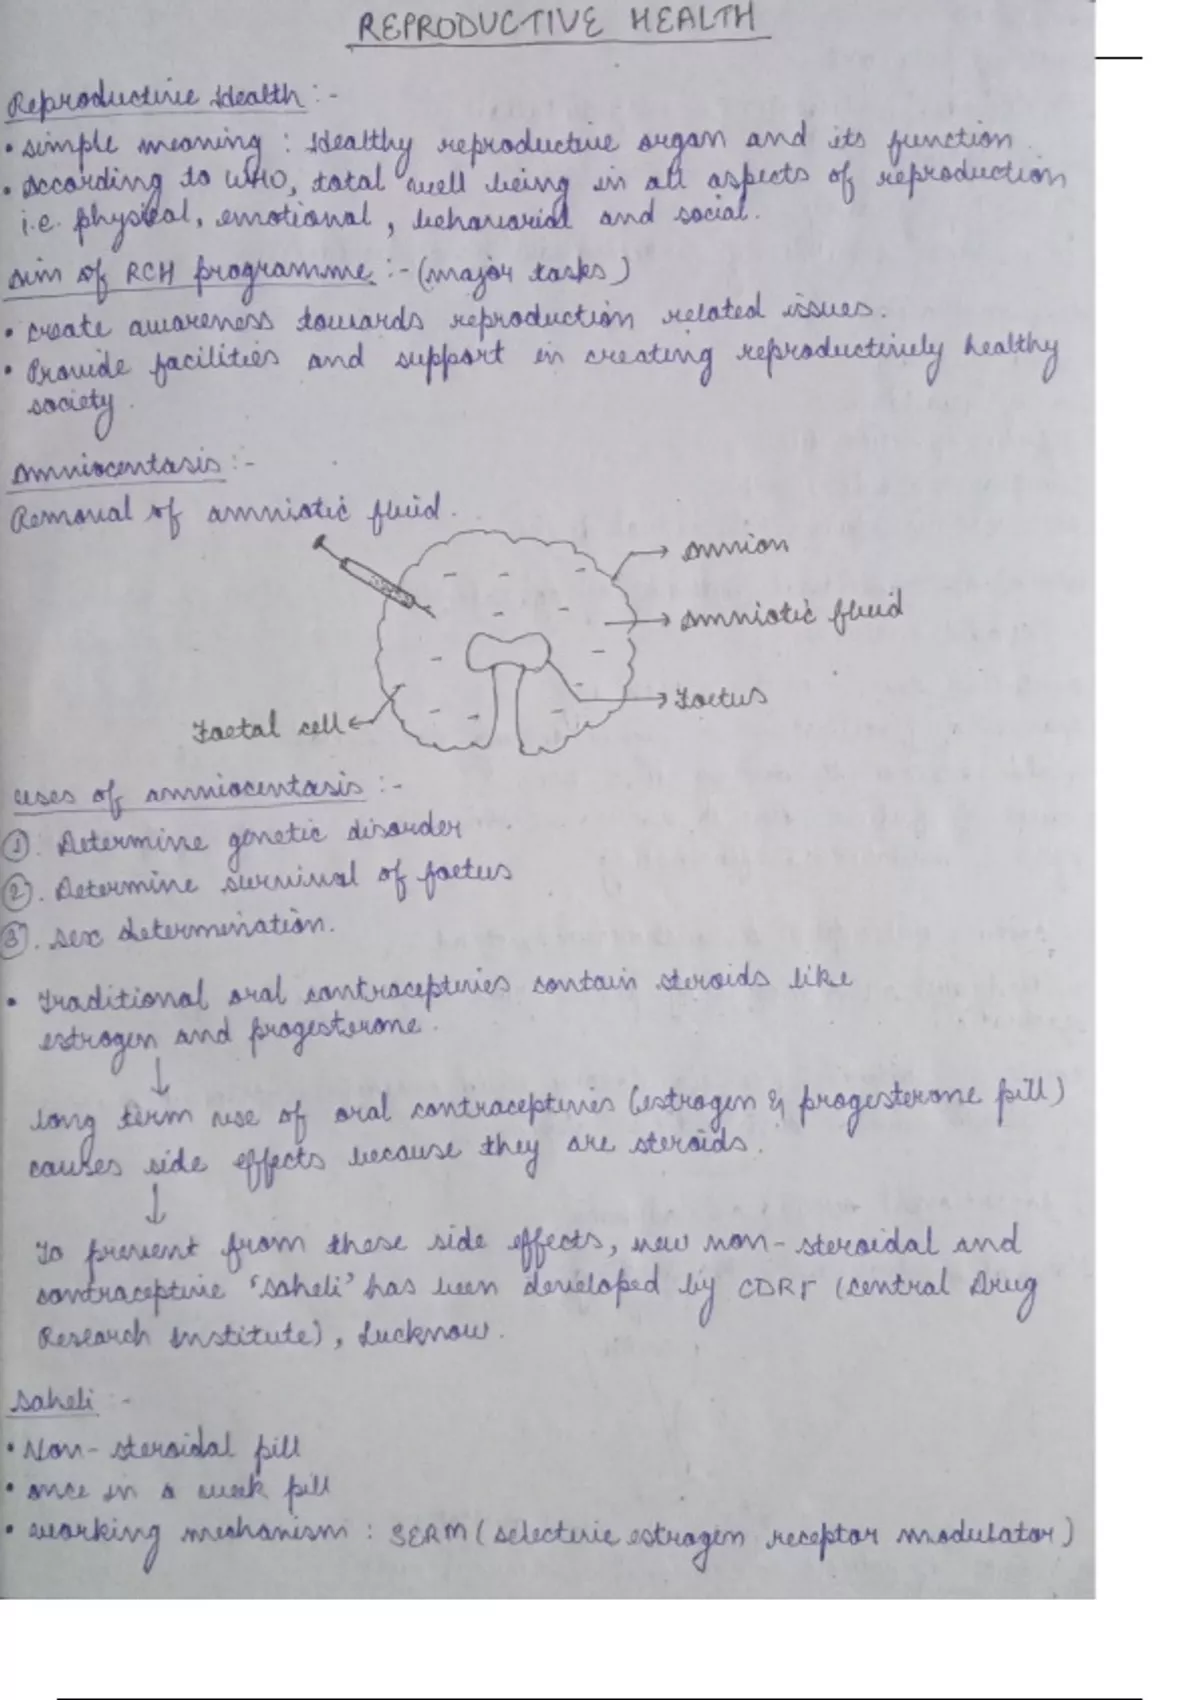 REPRODUCTIVE HEALTH
Reproductive Health :-
• simple meaning : Healthy reproductive organ and its function.
• According to WHO, total well being in all aspects of reproduction
i.e. physical, emotional, behaviorial and social.
Aim of RCH programme :- (major tasks)
• create awareness towards reproduction related issues.
• Provide facilities and support in creating reproductively healthy
society.
Amniocentasis :-
Removal of amniotic fluid.
Amnion
Amniotic fluid
Foetus
Faetal cell
uses of amniocentasis :-
①. Determine genetic disorder
②. Determine survival of foetus
③. sex determination.
• Traditional oral contraceptives contain steroids like
estrogen and progesterone.
↓
long term use of oral contraceptives (estrogen & progesterone pill)
causes side effects because they are steroids.
↓
To prevent from these side effects, new non-steroidal and
contraceptive 'saheli' has been developed by CDRI (central Drug
Research Institute), Lucknow.
Saheli :-
• Non-steroidal pill
• once in a week pill
• working mechanism : SERM (selective estrogen receptor modulator)